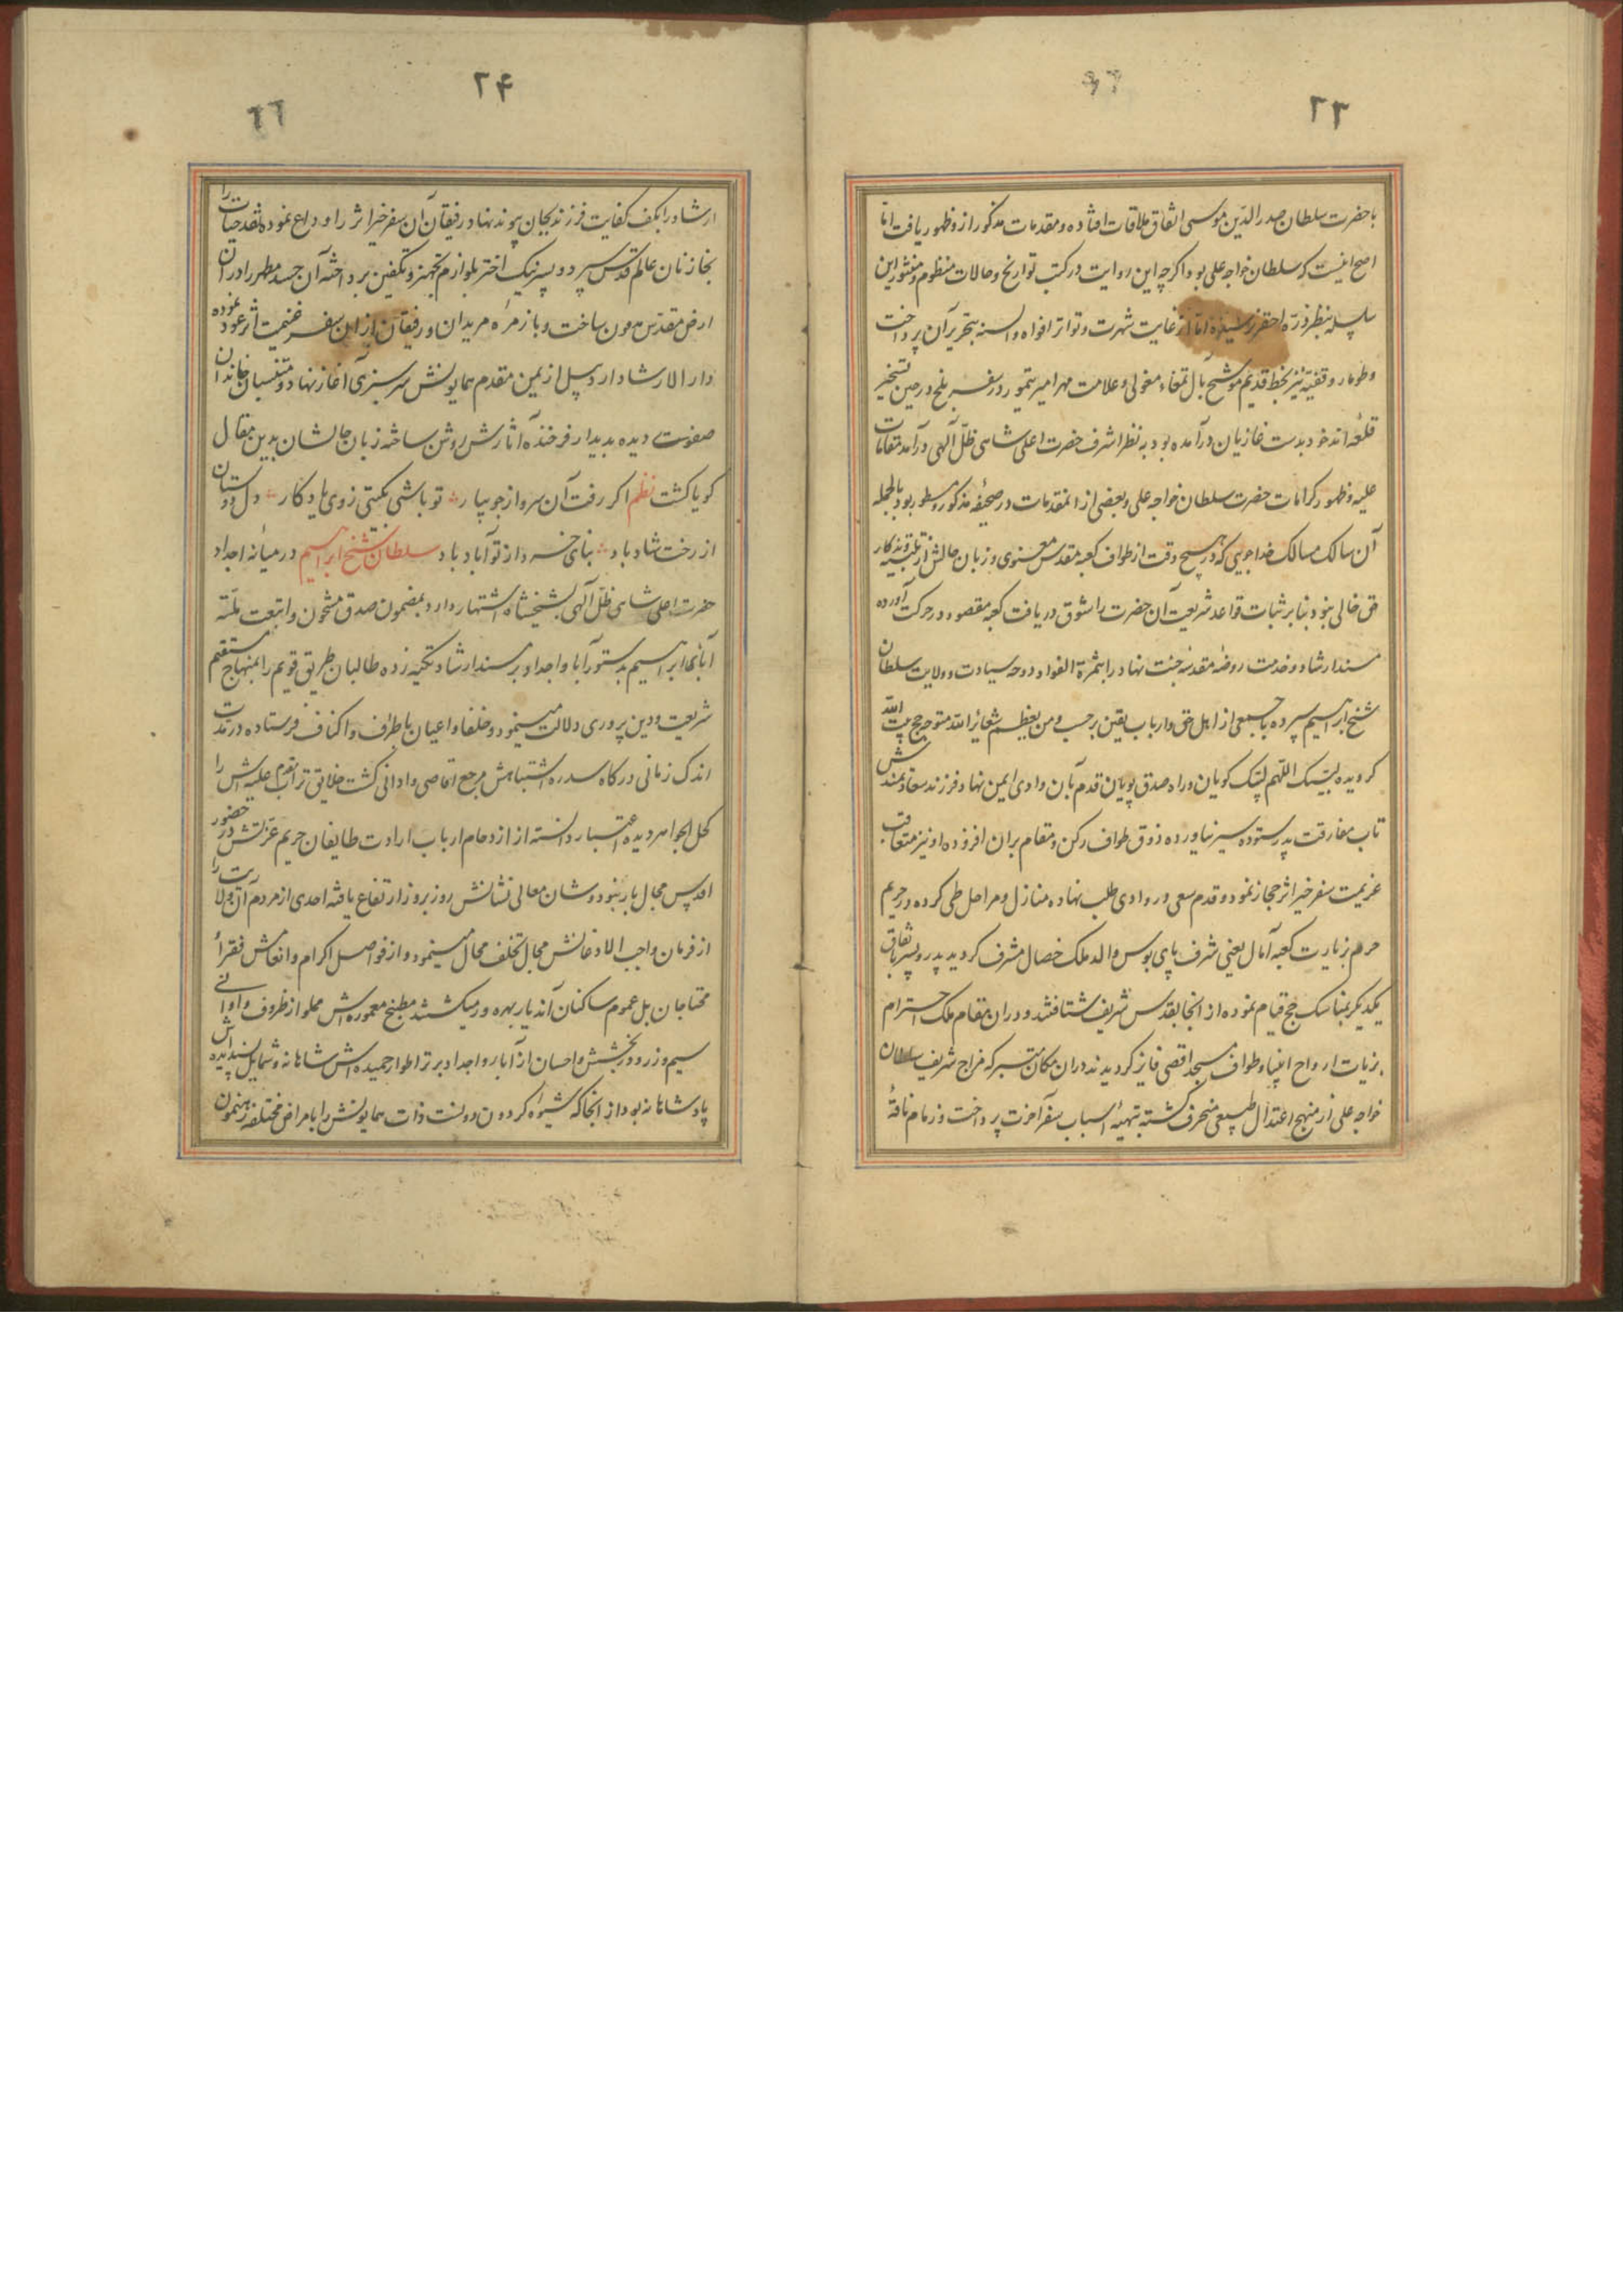 ۲۳
با حضرت سلطان صدر الدّین موسی اتفاق ملاقات افتاده و مقدمات مذکور از و ظهور یافت امّا
اصح اینست که سلطان خواجه علی بود اگرچه این روایت در کتب تواریخ و حالات منظوم و منثور این
سلسله بنظر ذرّه احقر نرسیده امّا از غایت شهرت و تواتر افواه و السنه بتحریر آن پرداخت
و طومار وقفیّه نیز بخط قدیم موشّح بال تمغاء مغولی و علامت مهر امیر تیمور در سفر بلخ در حین تسخیر
قلعه اندخود بدست غازیان درآمده بود به نظر اشرف حضرت اعلی شاهی ظلّ الّهی درآمد مقامات
علیه و ظهور کرامات حضرت سلطان خواجه علی و بعضی از المقدمات در صحیفه مذکور مسطور بود بالجمله
آن سالک مسالک خداجویی که در هیچ وقت از طواف کعبه مقدس معنوی و زبان حالش از تلبیه و تذکار
حق خالی نبود بنابر ثبات قواعد شریعت آن حضرت را شوق دریافت کعبه مقصود در حرکت آورده
مسند ارشاد و خدمت روضه مقدسه جنت نهاد را بثمرة الفواد و دوحه سیادت و ولایت سلطان
شیخ ابراهیم سپرده با جمعی از اهل حق و ارباب یقین برحسب و من یعظم شعایر الله متوجه حج بیت الله
کردیده لبیک اللهم لبیک کویان و راه صدق پویان قدم بآن وادی ایمن نهاد فرزند سعادتمندش
تاب مفارقت پدر ستوده سیر نیاورده ذوق طواف رکن و مقام بران افزوده او نیز متعاقب
عزیمت سفر خیر اثر حجاز نمود و قدم سعی در وادی طلب نهاده منازل و مراحل طی کرده در حریم
حرم بزیارت کعبه آمال یعنی شرف پای بوس والد ملک خصال مشرف کردید پدر و پسر باتفاق
یکدیکر بمناسک حج قیام نموده از انجا بقدس شریف شتافتند و دران مقام ملک احترام
بزیات ارواح انبیا و طواف مسجد اقصی فایز کردیدند دران مکان متبرکه مزاج شریف سلطان
خواجه علی از منهج اعتدال طبیعی منحرف کشته بتهیهٔ اسباب سفر آخرت پرداخت و زمام ناقهٔ
۲۴
۶۶
ارشاد را بکف کفایت فرزند بجان پیوند نهاد رفیقان آن سفر خیر اثر را وداع نموده نقد حیات را
بخازنان عالم قدس سپرد و پسر نیک اختر بلوازم تجهیز و تکفین پرداخته آن جسد مطهر را در آن
ارض مقدّس مدفون ساخت و با زمرهٔ مریدان و رفیقان از ان سفر غنیمت اثر عود نموده
دار الارشاد اردبیل از یمن مقدم همایونش سرسبزی آغاز نهاد و منتسبان خاندان
صفوت دیده بدیدار فرخنده آثارش روشن ساخته زبان حالشان بدین مقال
کویا کشت نظم اکر رفت آن سرو از جویبار تو باشی بکیتی زوی یادکار دل دوستان
از رخت شاد باد بنای خرد از تو آباد باد سلطان شیخ ابراهیم در میانه اجداد
حضرت اعلی شاهی ظلّ الّهی بشیخشاه اشتهار دارد بمضمون صدق مشحون و اتبعت ملّة
آبائی ابراهیم بدستور آبا و اجداد بر مسند ارشاد تکیه زده طالبان طریق قویم را بمنهاج مستقیم
شریعت و دین پروری دلالت مینمود و خلفا و اعیان باطراف و اکناف فرستاده در مدت
اندک زمانی درکاه سدره اشتباهش مرجع اقاصی و ادانی کشت خلایق تراب قدوم علیه اش را
کحل الجواهر دیده اعتبار دانسته از ازدحام ارباب ارادت طایفان حریم عزتش در حضور
اقدس مجال بار نبود و شان معالی نشانش روز بروز ارتفاع یافته احدی از مردم آن ولایت را
از فرمان واجب الاذعانش مجال تخلف محال مینمود و از فواصل اکرام و انعامش فقرا و
محتاجان بل عموم ساکنان آندیار بهره ور میکشتند مطبخ معموره اش مملو از ظروف و اوانی
سیم و زر و در بخشش و احسان از آبا و اجداد برتر اطوار حمیده اش شاهانه و شمایل پسندیده اش
پادشاهانه بود از انجا که شیوه کردون دونست ذات همایونش را بامراض مختلفه رهنمون